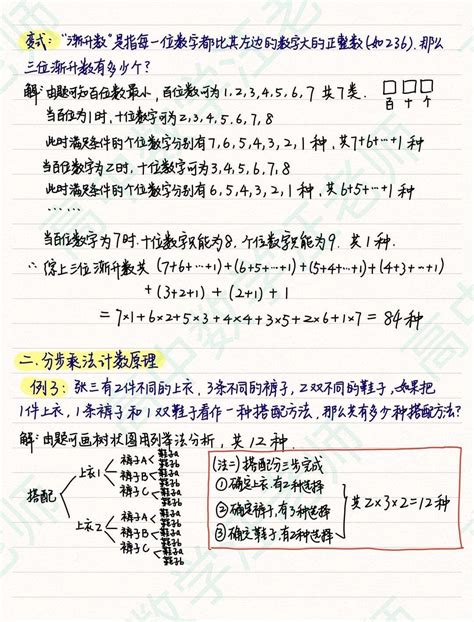 变式:“渐升数”是指每一位数字都比其左边的数字大的正整数(如236),那么
三位渐升数有多少个?
解:由题可知百位数最小,百位数可为1,2,3,4,5,6,7 共7类.
百 十 个
当百位为1时,十位数字可为2,3,4,5,6,7,8
此时满足条件的个位数字分别有7,6,5,4,3,2,1种,共7+6+…+1种
当百位数字为2时,十位数字可为3,4,5,6,7,8
此时满足条件的个位数字分别有6,5,4,3,2,1种,共6+5+…+1种
……
当百位数字为7时,十位数字只能为8,个位数字只能为9.共1种.
∴综上三位渐升数共(7+6+…+1)+(6+5+…+1)+(5+4+…+1)+(4+3+…+1)
+(3+2+1)+(2+1)+1
=7×1+6×2+5×3+4×4+3×5+2×6+1×7=84种
二.分步乘法计数原理
例3:张三有2件不同的上衣,3条不同的裤子,2双不同的鞋子,如果把
1件上衣,1条裤子和1双鞋子看作一种搭配方法,那么共有多少种搭配方法?
解:由题可画树状图用列举法分析,共12种.
搭配
上衣1
裤子A
鞋子a
鞋子b
裤子B
鞋子a
鞋子b
裤子C
鞋子a
鞋子b
上衣2
裤子A
鞋子a
鞋子b
裤子B
鞋子a
鞋子b
裤子C
鞋子a
鞋子b
(法二)搭配分三步完成
①确定上衣,有2种选择
②确定裤子,有3种选择
③确定鞋子,有2种选择
共2×3×2=12种